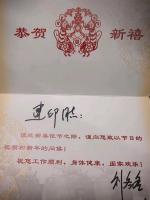 恭贺 新禧
值此新春佳节之际，谨向您致以节日的
祝贺和新年的问候！
祝您工作顺利，身体健康，阖家欢乐！